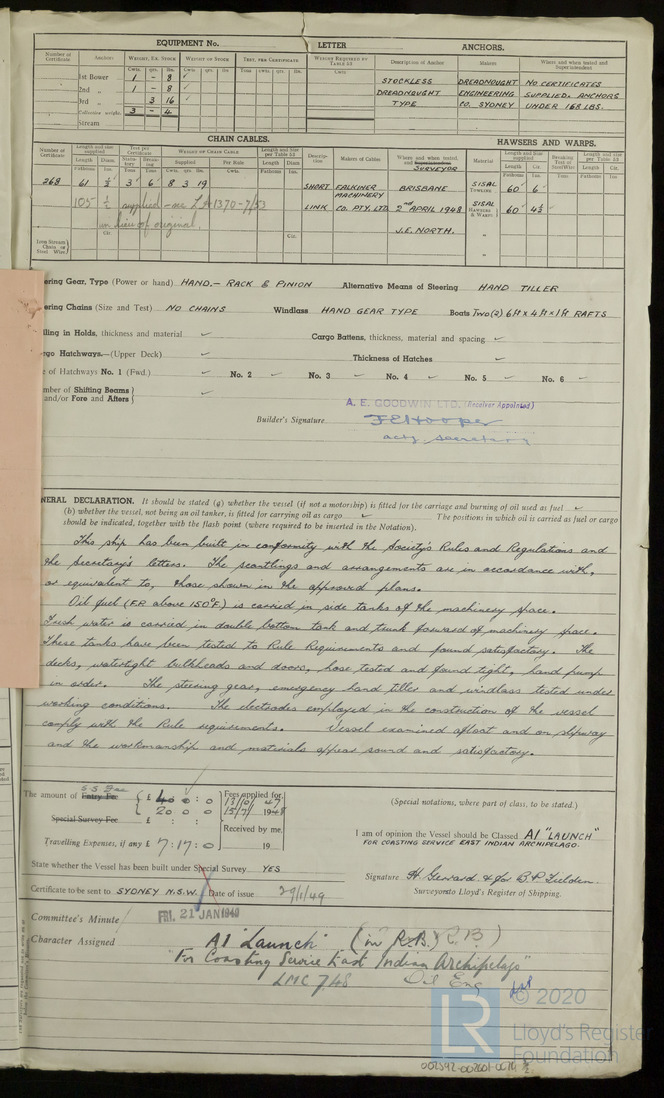 EQUIPMENT No. LETTER ANCHORS.
Number of Certificate Anchors Weight, Ex. Stock Weight of Stock Test, per Certificate Weight Required by Table 53 Description of Anchor Makers Where and when tested and Superintendent
Cwts. qrs. lbs. Cwts. qrs. lbs. Tons cwts. qrs. lbs. Cwts
1st Bower 1 - 8 ✓ STOCKLESS DREADNOUGHT NO CERTIFICATES
2nd „ 1 - 8 ✓ DREADNOUGHT ENGINEERING SUPPLIED. ANCHORS
3rd „ 3 16 ✓ TYPE CO. SYDNEY UNDER 168 LBS.
Collective weight 3 - 4
Stream
CHAIN CABLES. HAWSERS AND WARPS.
Number of Certificate Length and size supplied Test per Certificate Weight of Chain Cable Length and size per Table 53 Description Makers of Cables Where and when tested, and Superintendent SURVEYOR Material Length and Size supplied Breaking Test of Steel Wire Length and Size per Table 53
Length Diam. Statutory Breaking Supplied Per Rule Length Diam Length Cir. Length Cir.
Fathoms Ins. Tons Tons Fathoms Ins. Fathoms Ins. Tons Fathoms Ins.
268 61 ½ 3 6 8 3 19 SHORT FALKINER BRISBANE SISAL TOWLINE 60 6
MACHINERY
105 ½ supplied - see L 1370-7/53 LINK CO. PTY. LTD 2nd APRIL 1948 SISAL HAWSERS & WARPS 60 4½
in lieu of original. J.E. NORTH.
Iron Stream Chain or Steel Wire Cir. Cir.
ering Gear, Type (Power or hand) HAND.- RACK & PINION Alternative Means of Steering HAND TILLER
ering Chains (Size and Test) NO CHAINS Windlass HAND GEAR TYPE Boats TWO (2) 6ft x 4ft x 1ft RAFTS
ling in Holds, thickness and material ✓ Cargo Battens, thickness, material and spacing ✓
go Hatchways.—(Upper Deck) ✓ Thickness of Hatches ✓
e of Hatchways No. 1 (Fwd.) ✓ No. 2 ✓ No. 3 ✓ No. 4 ✓ No. 5 ✓ No. 6 ✓
mber of Shifting Beams and/or Fore and Afters ✓
A. E. GOODWIN LTD. (Receiver Appointed)
Builder's Signature J E Hooper
actg secretary
NERAL DECLARATION. It should be stated (a) whether the vessel (if not a motorship) is fitted for the carriage and burning of oil used as fuel ✓
(b) whether the vessel, not being an oil tanker, is fitted for carrying oil as cargo ✓ The positions in which oil is carried as fuel or cargo
should be indicated, together with the flash point (where required to be inserted in the Notation).
This ship has been built in conformity with the Society's Rules and Regulations and
the Secretary's letters. The scantlings and arrangements are in accordance with,
or equivalent to, those shown in the approved plans.
Oil fuel (F.P. above 150°F.) is carried in side tanks of the machinery space.
Fresh water is carried in double bottom tank and trunk forward of machinery space.
These tanks have been tested to Rule Requirements and found satisfactory. The
decks, watertight bulkheads and doors, hose tested and found tight, hand pump
in order. The steering gear, emergency hand tiller and windlass tested under
working conditions. The electrodes employed in the construction of the vessel
comply with the Rule requirements. Vessel examined afloat and on slipway
and the workmanship and materials appear sound and satisfactory.
The amount of Entry Fee £ 40 : 0 : 0 Fees applied for,
13/10/ 47
20 0 0 15/7/ 1948
Special Survey Fee £ : : Received by me,
Travelling Expenses, if any £ 7 : 17 : 0 19
(Special notations, where part of class, to be stated.)
I am of opinion the Vessel should be Classed A1 "LAUNCH"
FOR COASTING SERVICE EAST INDIAN ARCHIPELAGO.
State whether the Vessel has been built under Special Survey YES
Signature H. Gerrard & for B.P. Fielden.
Surveyors to Lloyd's Register of Shipping.
Certificate to be sent to SYDNEY N.S.W. Date of issue 29/1/49
Committee's Minute FRI. 21 JAN 1949
Character Assigned A1 "Launch" (in R.B.)
"For Coasting Service East Indian Archipelago"
LMC 7,48 Oil Eng
© 2020
LR
Lloyd's Register
Foundation
002592-002601-0076 ½